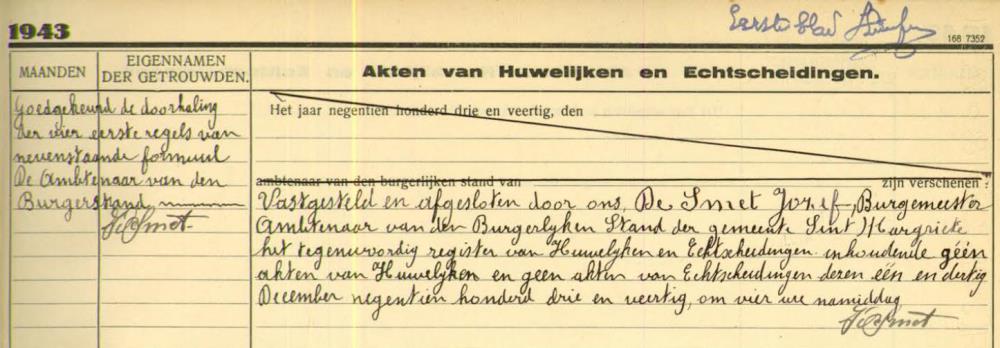 Eerste blad
1943
168 7352
MAANDEN
EIGENNAMEN
DER GETROUWDEN.
Akten van Huwelijken en Echtscheidingen.
Goedgekeurd de doorhaling
der vier eerste regels van
nevenstaande formuul
De Ambtenaar van den
Burgerstand
JDeSmet
Het jaar negentien honderd drie en veertig, den
ambtenaar van den burgerlijken stand van zijn verschenen :
Vastgesteld en afgesloten door ons, De Smet Jozef, Burgemeester
Ambtenaar van den Burgerlyken Stand der gemeente Sint Margriete
het tegenwoordig register van Huwelyken en Echtscheidingen inhoudende géén
akten van Huwelyken en geen akten van Echtscheidingen deren één en dertig
December negentien honderd drie en veertig, om vier ure namiddag
JDeSmet